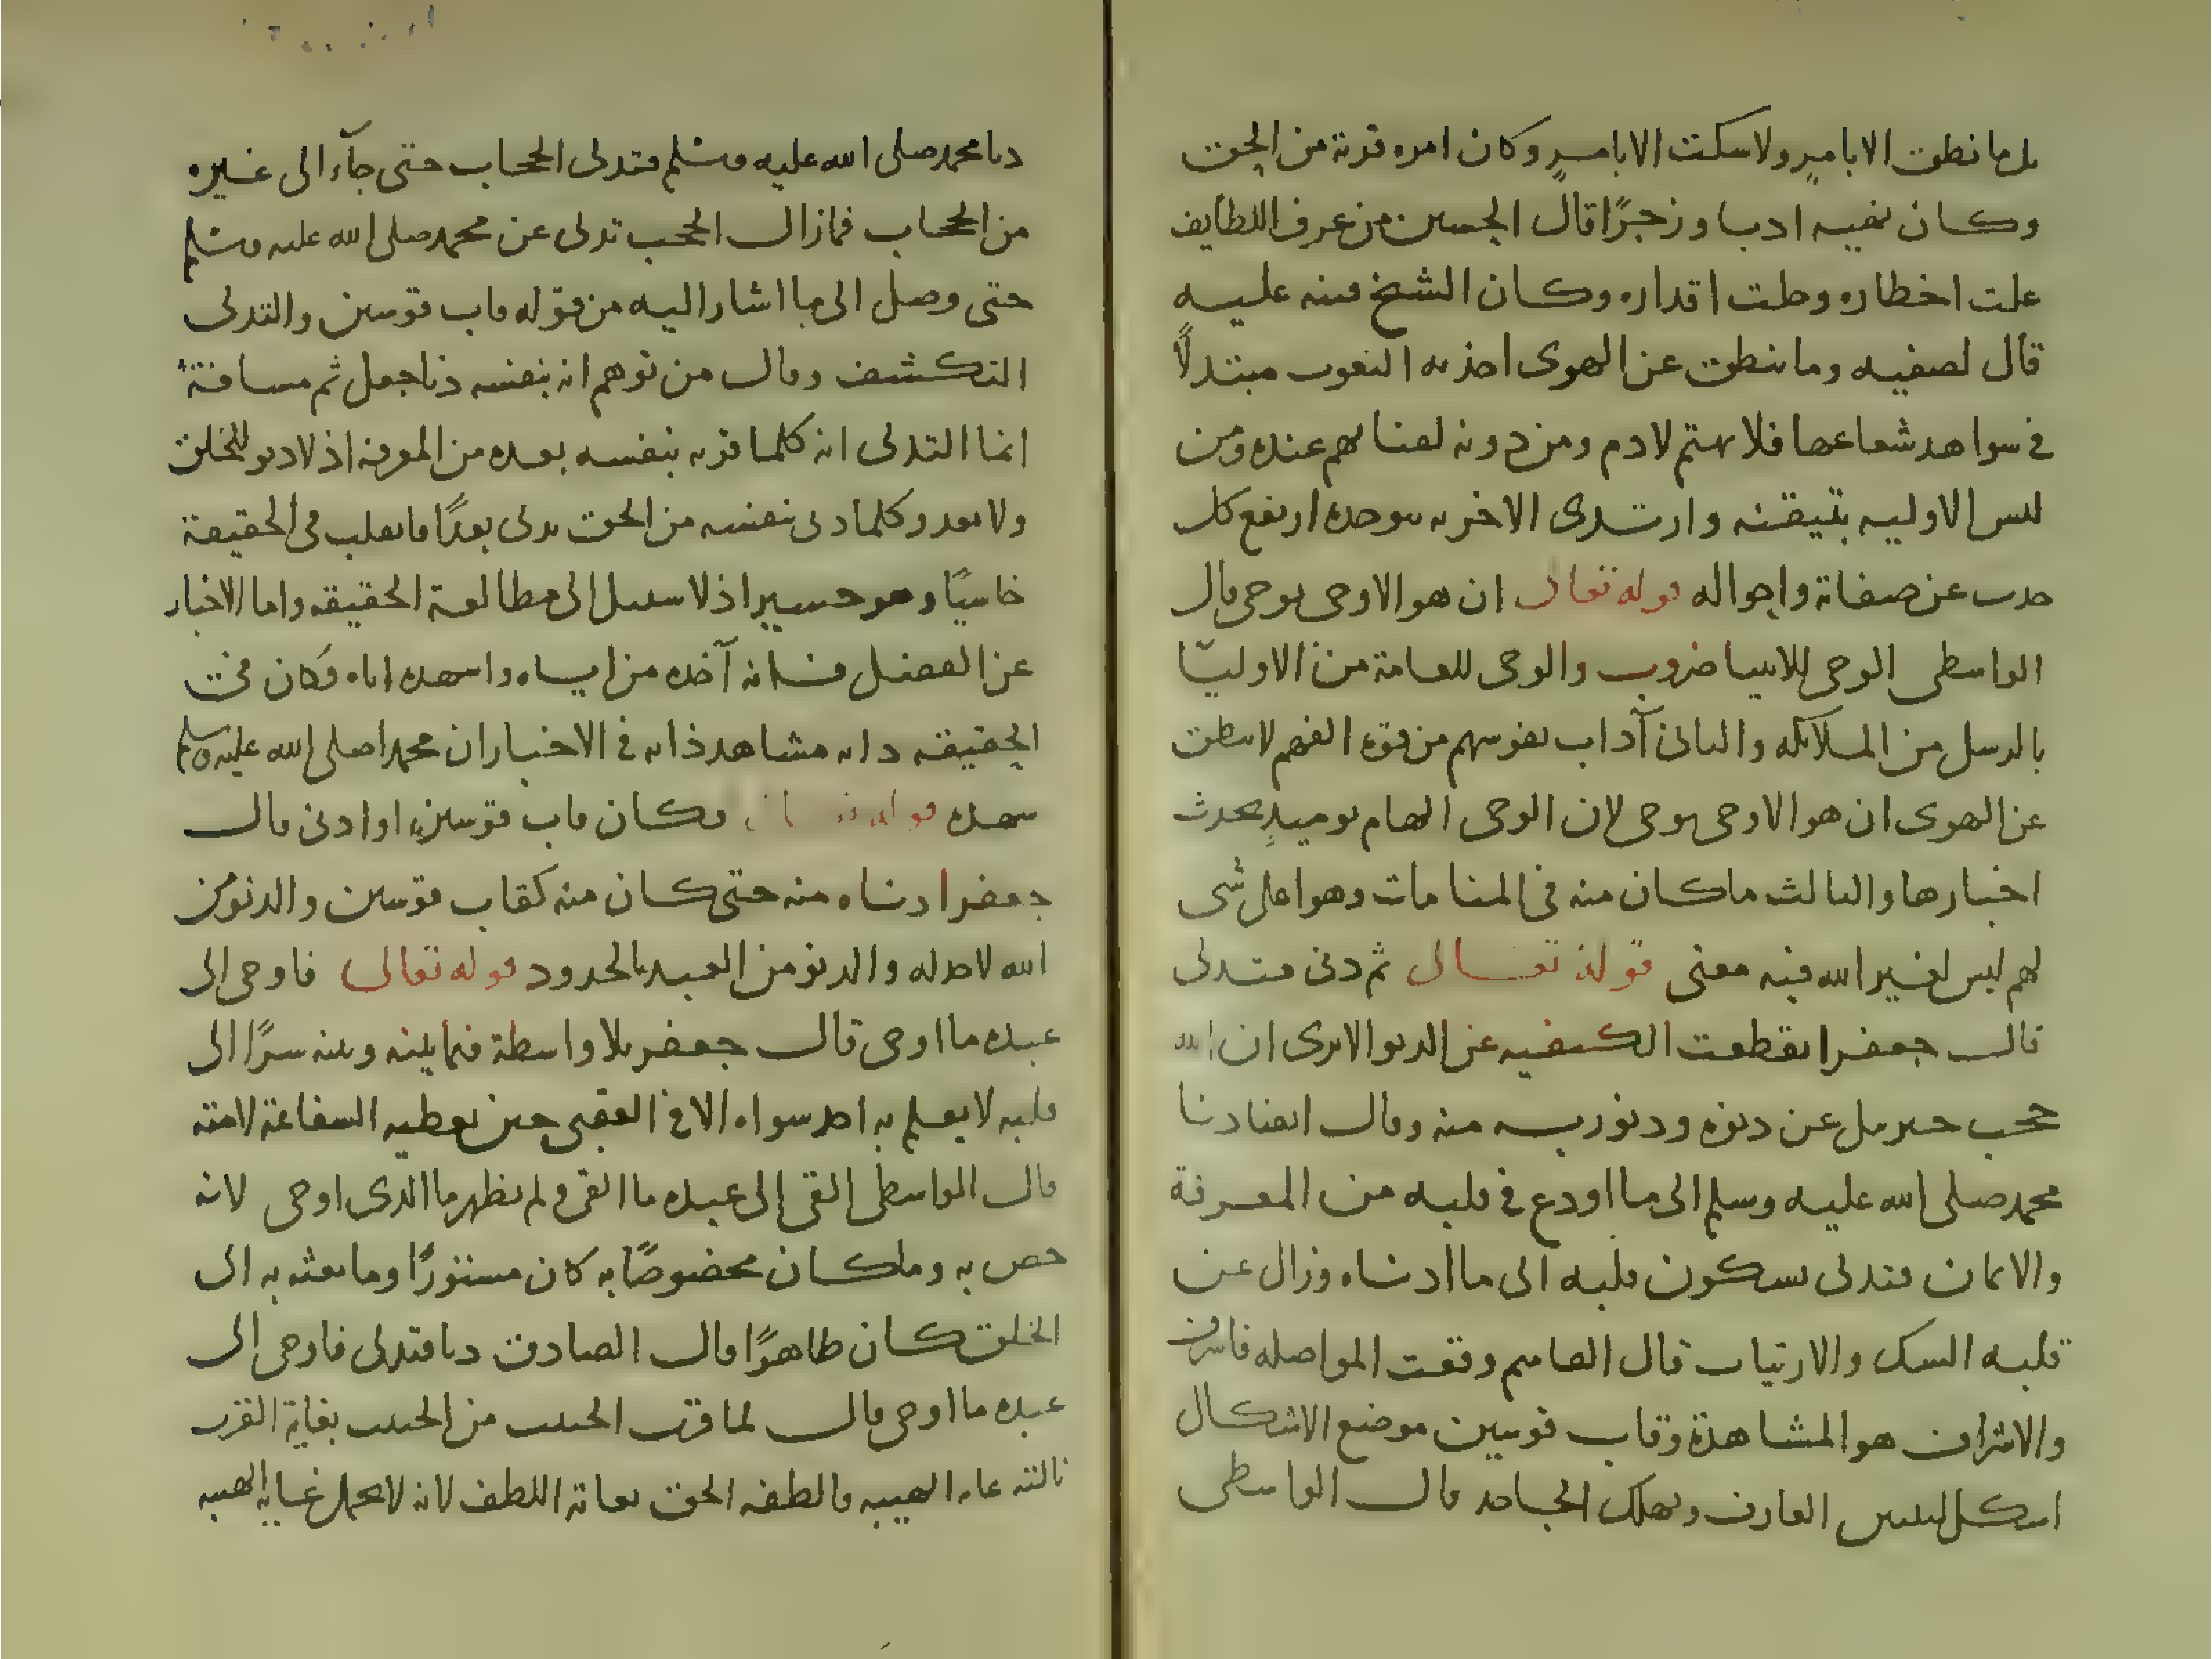 بل ما نطق الا بامرٍ ولا سكت الا بامرٍ وكان امره قربة من الحق
وكان نهيه ادبا وزجرًا قال الحسين من عرف اللطايف
علت اخطاره وجلت اقداره وكان الشيخ منه عليه
قال لصفيه وما ينطق عن الهوى اخذ به النعوت مبتدلًا
في سواهد شعاعها فلا يهتم لادم ومن دونه لفنايهم عنده ومن
لبس الاوليه بتيقنه وارتدى الاخريه بتوحده ارتفع كل
حدث عن صفاته واحواله قوله تعالى ان هو الا وحى يوحى قال
الواسطى الوحى للانبيا ضروب والوحى للعامة من الاوليا
بالرسل من الملائكه والثانى آداب نفوسهم من قوة الفهم لا ينطق
عن الهوى ان هو الا وحى يوحى لان الوحى الهام يوميذٍ تحدث
اخبارها والثالث ماكان منه فى المنامات وهو اعلى شى
لهم ليس لغير الله فيه معنى قوله تعالى ثم دنى فتدلى
قال جعفر انقطعت الكيفيه عن الدنو الا ترى ان الله
حجب جبريل عن دنوه ودنو ربه منه وقال ايضا دنا
محمد صلى الله عليه وسلم الى ما اودع فى قلبه من المعرفة
والايمان فتدلى بسكون قلبه الى ما ادناه وزال عن
قلبه الشك والارتياب قال القاسم وقعت المواصله فاشرف
والاشراف هو المشاهدة وقاب قوسين موضع الاشكال
اشكل ليلبس العارف ويهلك الجاحد قال الواسطى
دنا محمد صلى الله عليه وسلم فتدلى الحجاب حتى جآء الى غيره
من الحجاب فما زال الحجب تدلى عن محمد صلى الله عليه وسلم
حتى وصل الى ما اشار اليه من قوله قاب قوسين والتدلى
التكشف وقال من توهم انه بنفسه دنا جعل ثم مسافة
انما التدلى انه كلما قربه بنفسه بعده من المعرفه اذ لا دنو للخلق
ولا بعد وكلما دنى بنفسه من الحق تدلى بعدًا فانقلب فى الحقيقة
خاسيًا وهو حسير اذ لا سبيل الى مطالعة الحقيقه واما الاخبار
عن الفضل فانه آخذه من اياه واشهده اياه فكان فى
الحقيقه ذاته مشاهد ذاته فى الاخبار ان محمدا صلى الله عليه وسلم
شهده قوله تعالى فكان قاب قوسين او ادنى قال
جعفر ادناه منه حتى كان منه كقاب قوسين والدنو من
الله لا حد له والدنو من العبد بالحدود قوله تعالى فاوحى الى
عبده ما اوحى قال جعفر بلا واسطة فيما بينه وبينه سرًا الى
قلبه لا يعلم به احد سواه الا فى العقبى حين يعطيه الشفاعة لامته
قال الواسطى القى الى عبده ما القى ولم يظهر ما الذى اوحى لانه
خص به وما كان مخصوصًا به كان مستورًا وما بعثه به الى
الخلق كان ظاهرًا وقال الصادق دنا فتدلى فاوحى الى
عبده ما اوحى قال لما قرب الحبيب من الحبيب بغاية القرب
نالته غايه الهيبه فالطفه الحق بغاية اللطف لانه لا تحمل غايه الهيبه